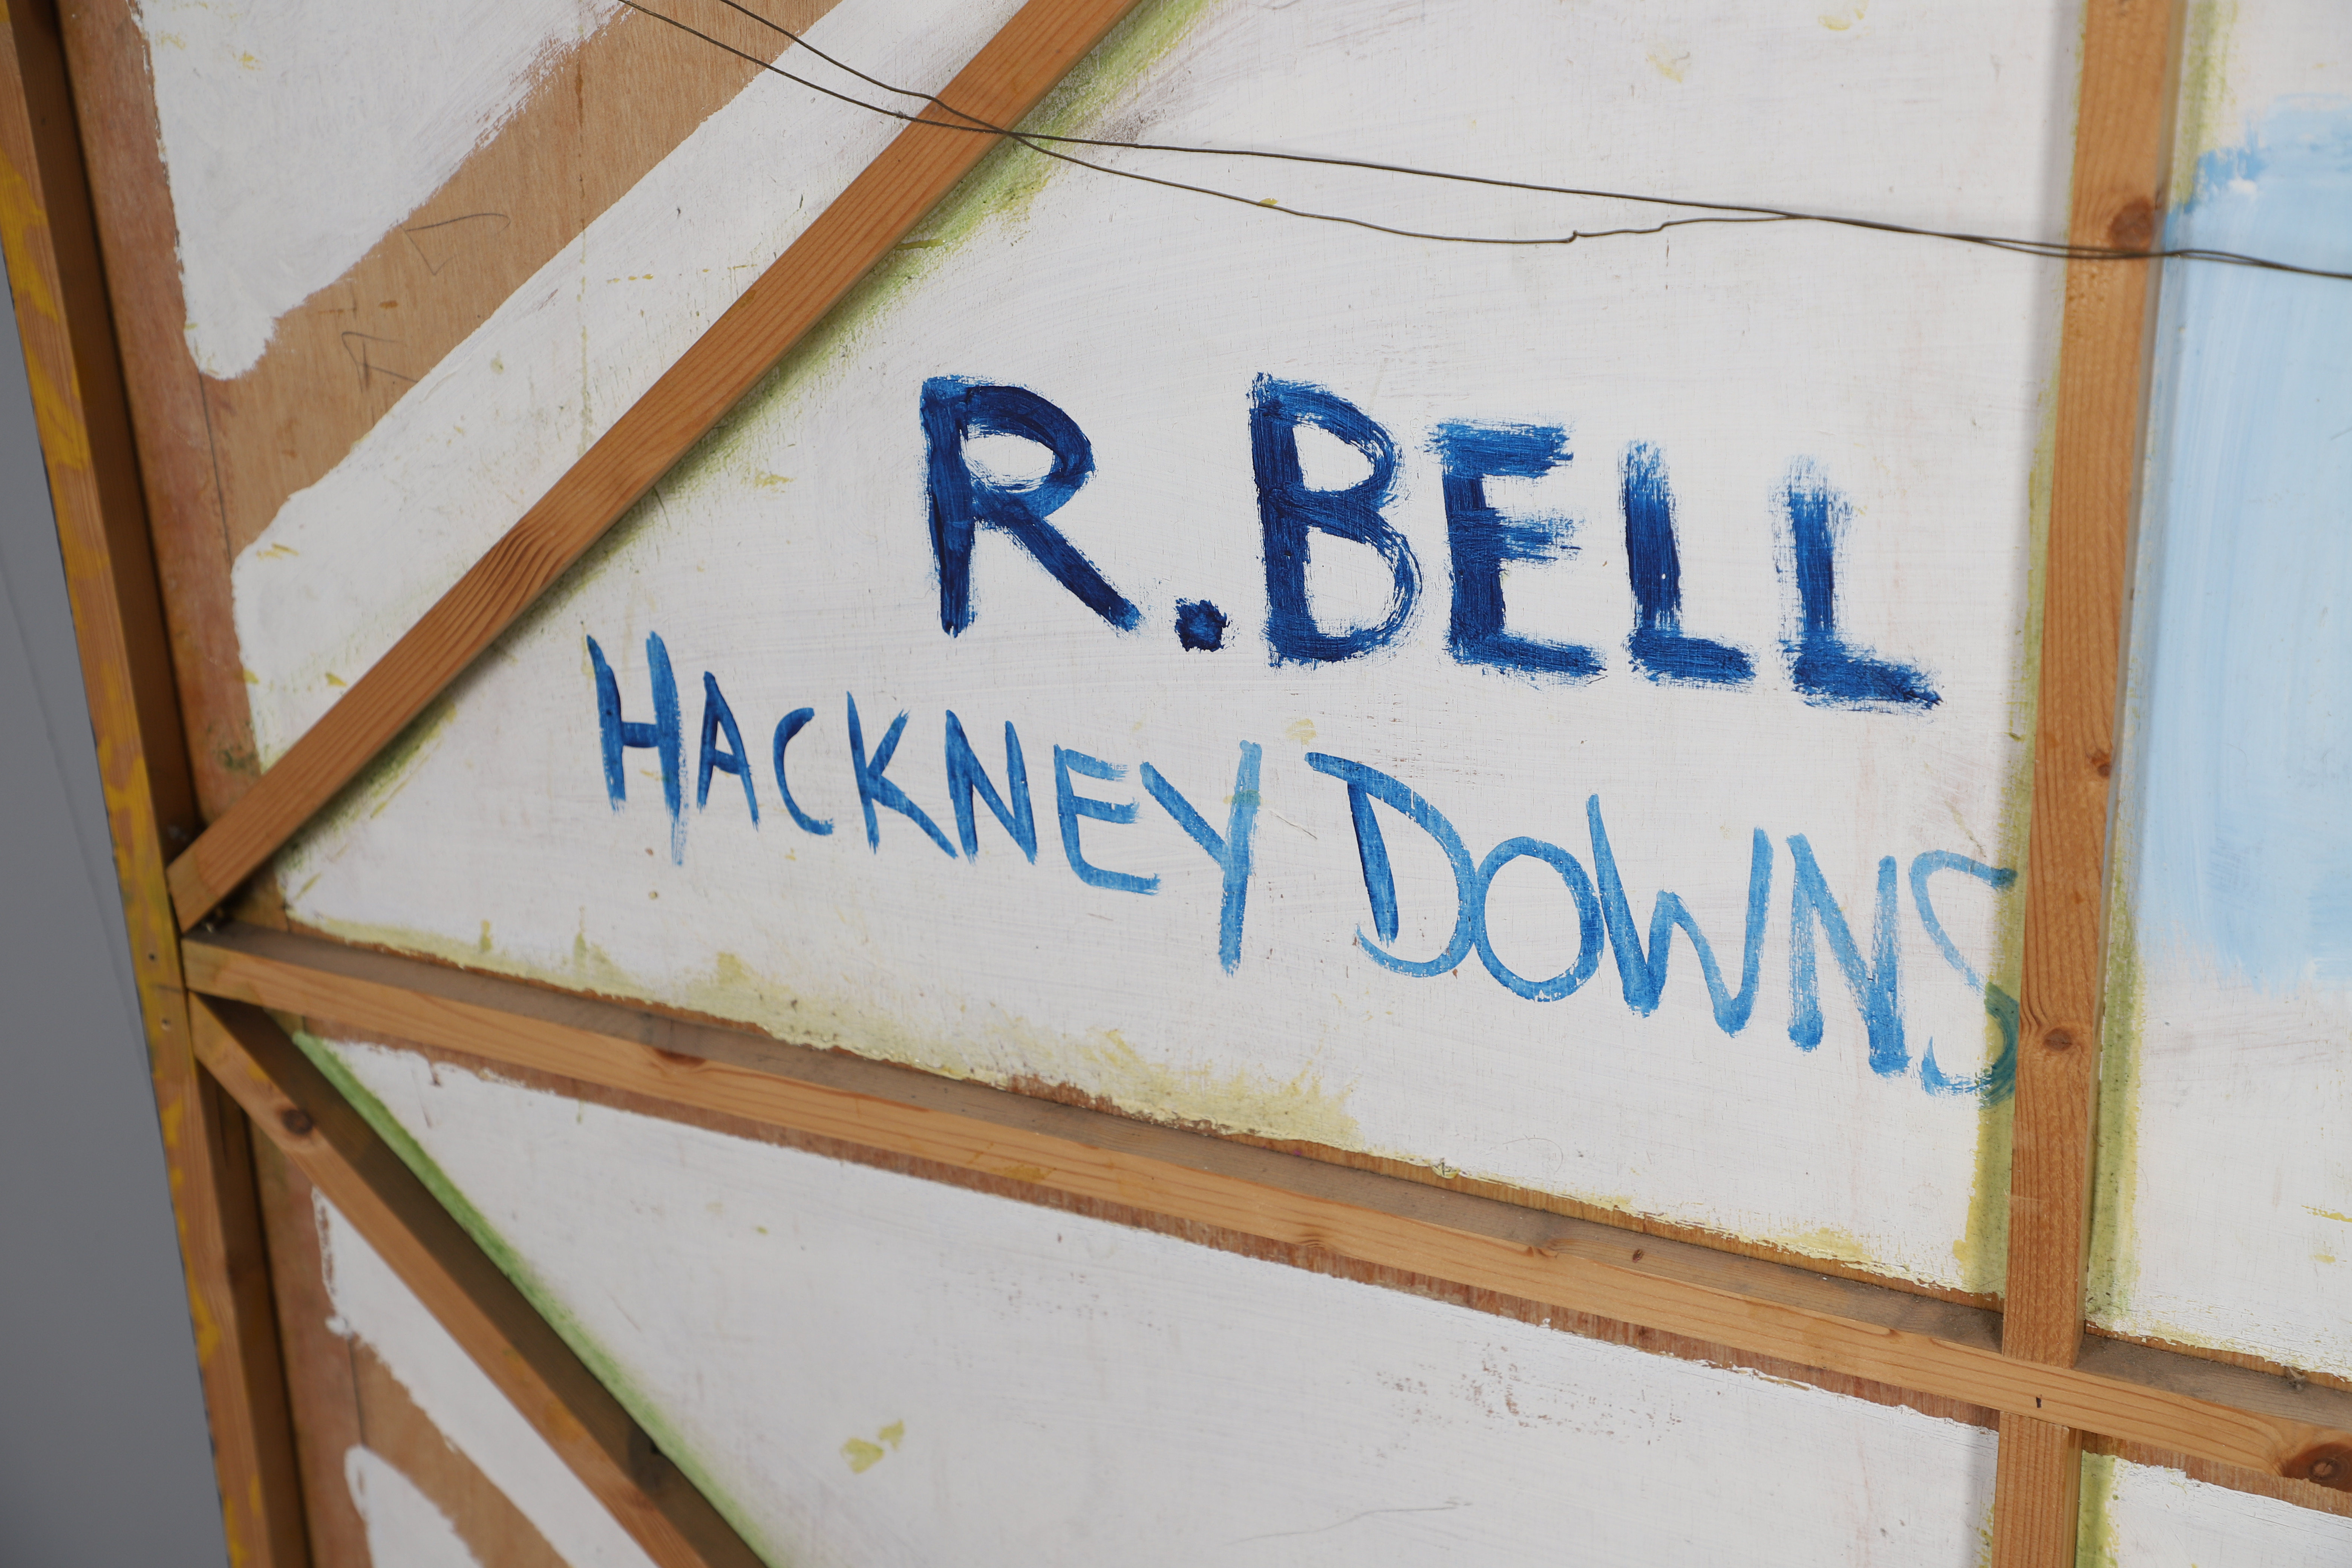 R. BELL
HACKNEY DOWNS